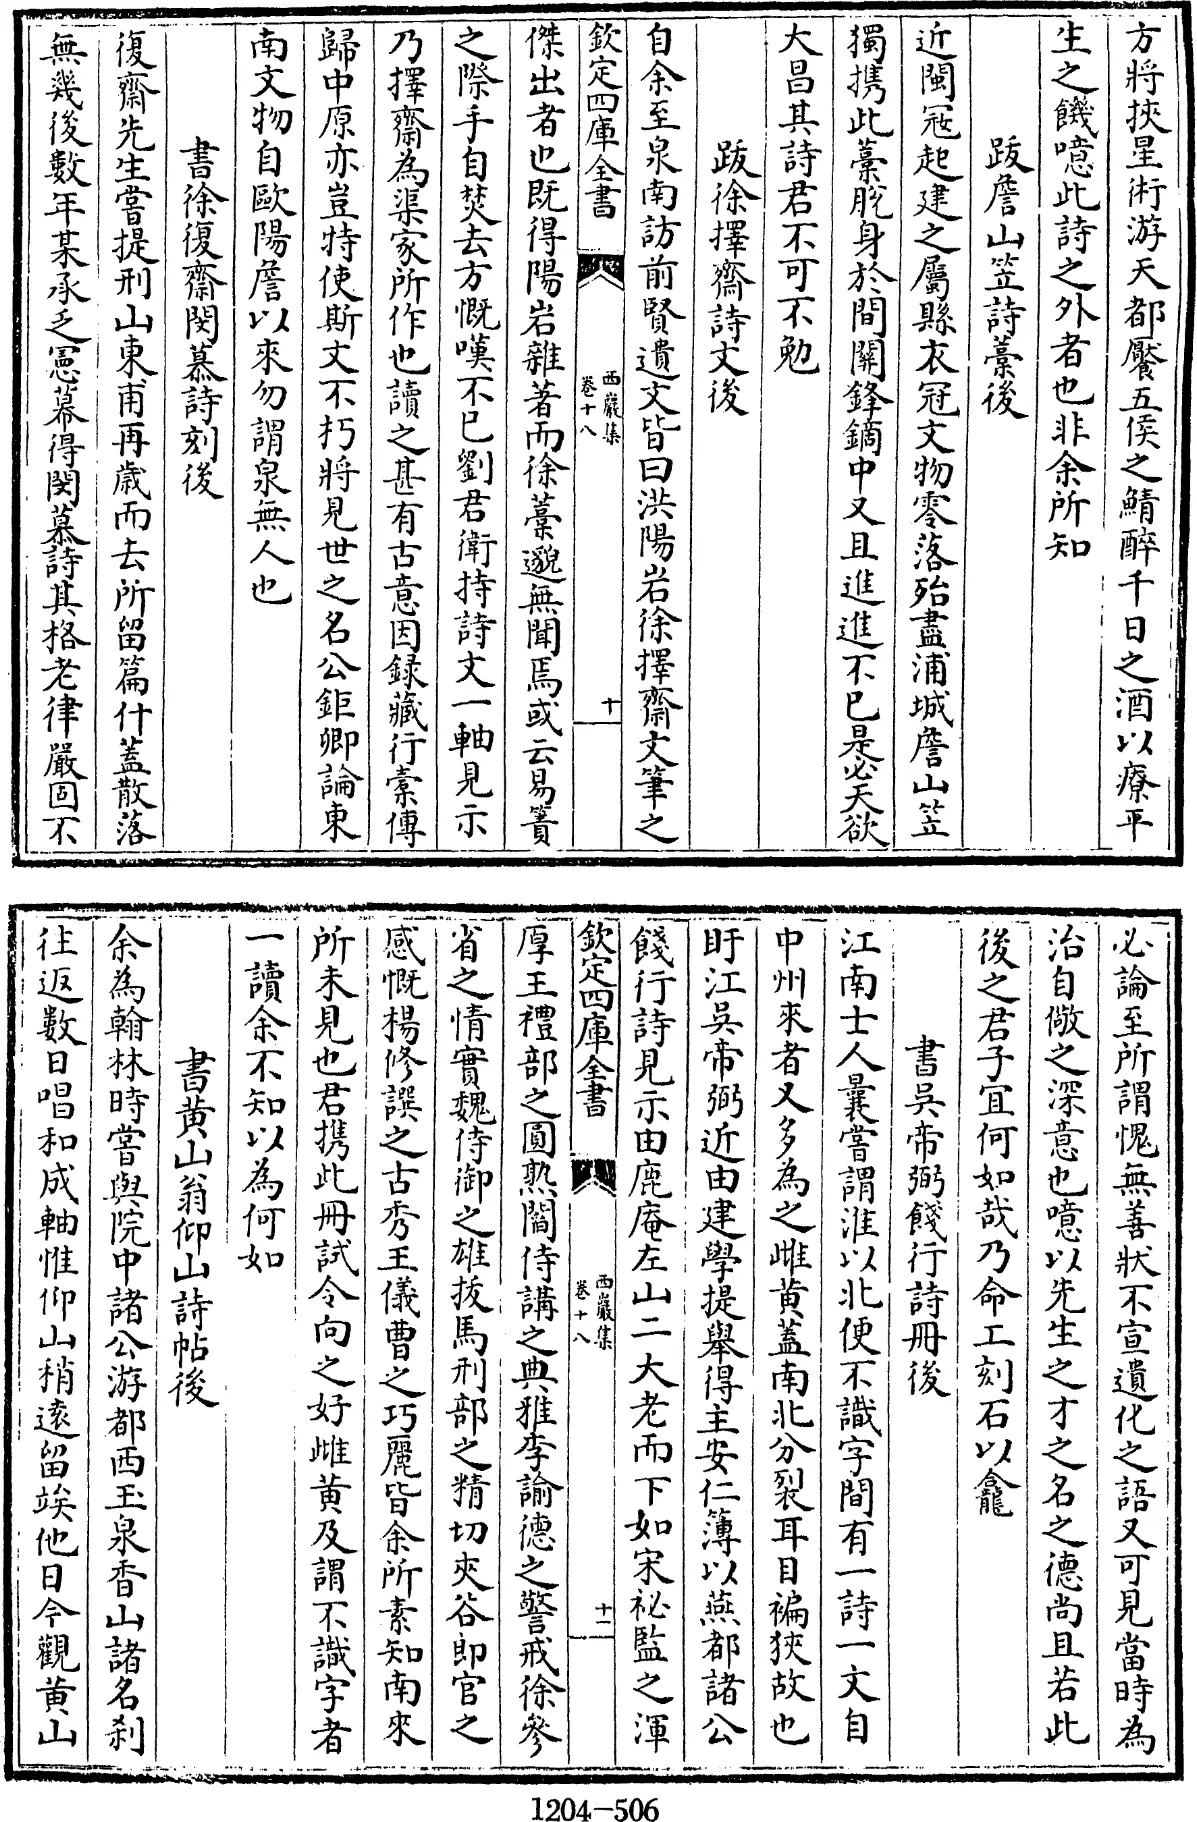 方將挾星術游天都饜五侯之鯖醉千日之酒以療平
生之饑噫此詩之外者也非余所知
跋詹山笠詩藁後
近閩冦起建之屬縣衣冠文物零落殆盡浦城詹山笠
獨携此藁脫身於間關鋒鏑中又且進進不已是必天欲
大昌其詩君不可不勉
跋徐擇齋詩文後
自余至泉南訪前賢遺文皆曰洪陽岩徐擇齋文筆之
欽定四庫全書
西巖集
卷十八
十
傑出者也既得陽岩雜著而徐藁邈無聞焉或云易簀
之際手自焚去方慨嘆不已劉君衛持詩文一軸見示
乃擇齋為渠家所作也讀之甚有古意因録藏行槖傳
歸中原亦豈特使斯文不朽將見世之名公鉅卿論東
南文物自歐陽詹以來勿謂泉無人也
書徐復齋閔慕詩刻後
復齋先生嘗提刑山東甫再歲而去所留篇什蓋散落
無幾後數年某承乏憲幕得閔慕詩其格老律嚴固不
必論至所謂愧無善狀不宣遺化之語又可見當時為
治自儆之深意也噫以先生之才之名之德尚且若此
後之君子宜何如哉乃命工刻石以龕
書吳帝弼餞行詩冊後
江南士人曩嘗謂淮以北便不識字間有一詩一文自
中州來者又多為之雌黄蓋南北分裂耳目褊狹故也
盱江吳帝弼近由建學提舉得主安仁簿以燕都諸公
餞行詩見示由鹿庵左山二大老而下如宋祕監之渾
欽定四庫全書
西巖集
卷十八
十一
厚王禮部之圓熟閻侍講之典雅李諭德之警戒徐參
省之情實魏侍御之雄拔馬刑部之精切夾谷郎官之
感慨楊修譔之古秀王儀曹之巧麗皆余所素知南來
所未見也君携此冊試令向之好雌黄及謂不識字者
一讀余不知以為何如
書黄山翁仰山詩帖後
余為翰林時嘗與院中諸公游都西玉泉香山諸名刹
往返數日唱和成軸惟仰山稍逺留竢他日今觀黄山
1204-506